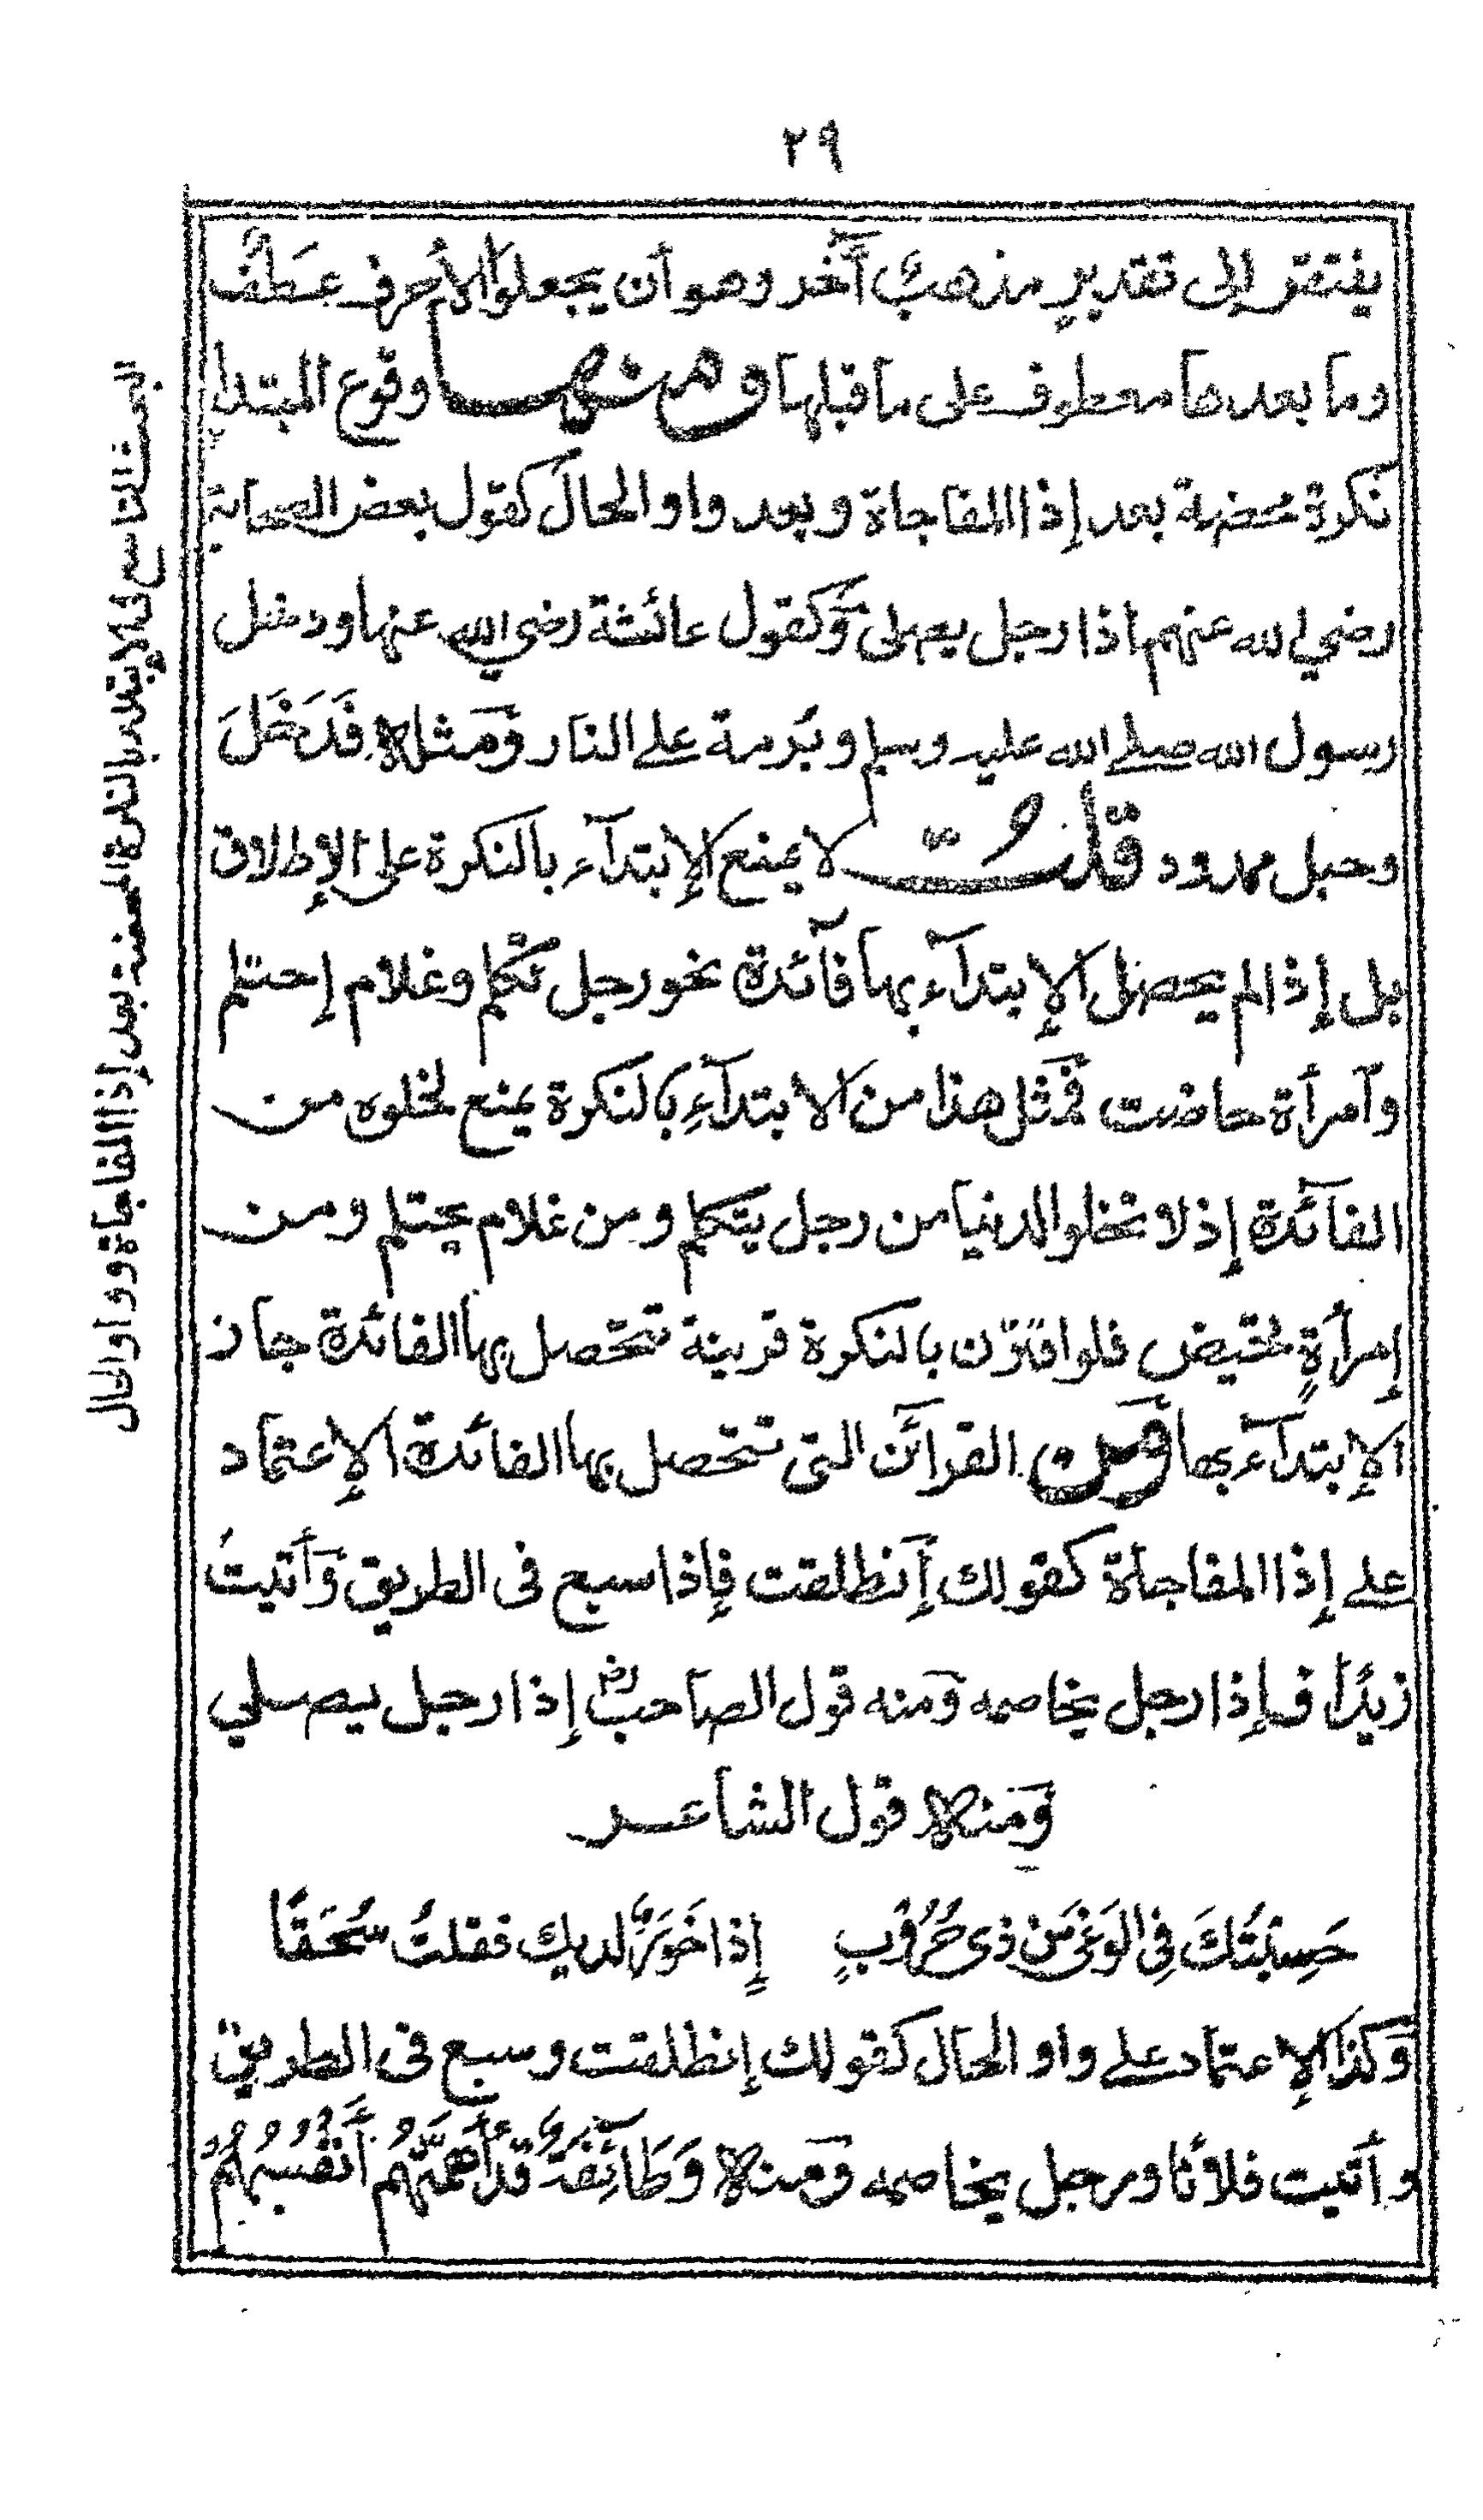 ٢٩
يفتقر إلى تقديرِ مذهب آخر وهو أن يجعلوا الأحرف عطف
وما بعدها معطوف على ما قبلها ومنها وقوع المبتدإ
نكرة محضة بعد إذا المفاجاة وبعد واو الحال كقول بعض الصحابة
رضي الله عنهم إذا رجل يصلى وكقول عائشة رضي الله عنها ودخل
رسول الله صلى الله عليه وسلم وبُرمة على النار ومثله فَدَخَلَ
وحبل ممدود قلت لا يمنع الإبتدآء بالنكرة على الإطلاق
بل إذا لم يحصل الإبتدآء بها فآئدة نحو رجل تكلم وغلام إحتلم
وآمرأة حاضت فمثل هذا من الابتدآءِ بالنكرة يمنع لخلوه من
الفائدة إذ لا تخلو الدنيا من رجل يتكلم ومن غلام يحتلم ومن
إمرأةٍ تحيض فلو اقترن بالنكرة قرينة تتحصل بها الفائدة جاز
الإبتدآء بها ومن القرآئن التى تتحصل بها الفائدة الإعتماد
على إذا المفاجأة كقولك إنطلقت فإذا سبع فى الطريق وأتيتُ
زيدًا فإذا رجل يخاصمه ومنه قول الصاحب رض إذا رجل يصلي
ومنه قول الشاعر
حَسِبتُكَ فِى الوَغَى مَن ذى حُرُوبٍ إذا خَوَرٌ لديك فقلتُ سُحقًا
وكذا الإعتماد على واو الحال كقولك إنطلقت وسبع فى الطريق
وأتيت فلانًا ورجل يخاصمه ومنه وَطَائِفَةٌ قَدْ أَهَمَّتْهُمْ أَنْفُسُهُمْ
المبحث التاسع فى الإبتداء بالنكرة المحضة بعد إذا المفاجأة وواو الحال